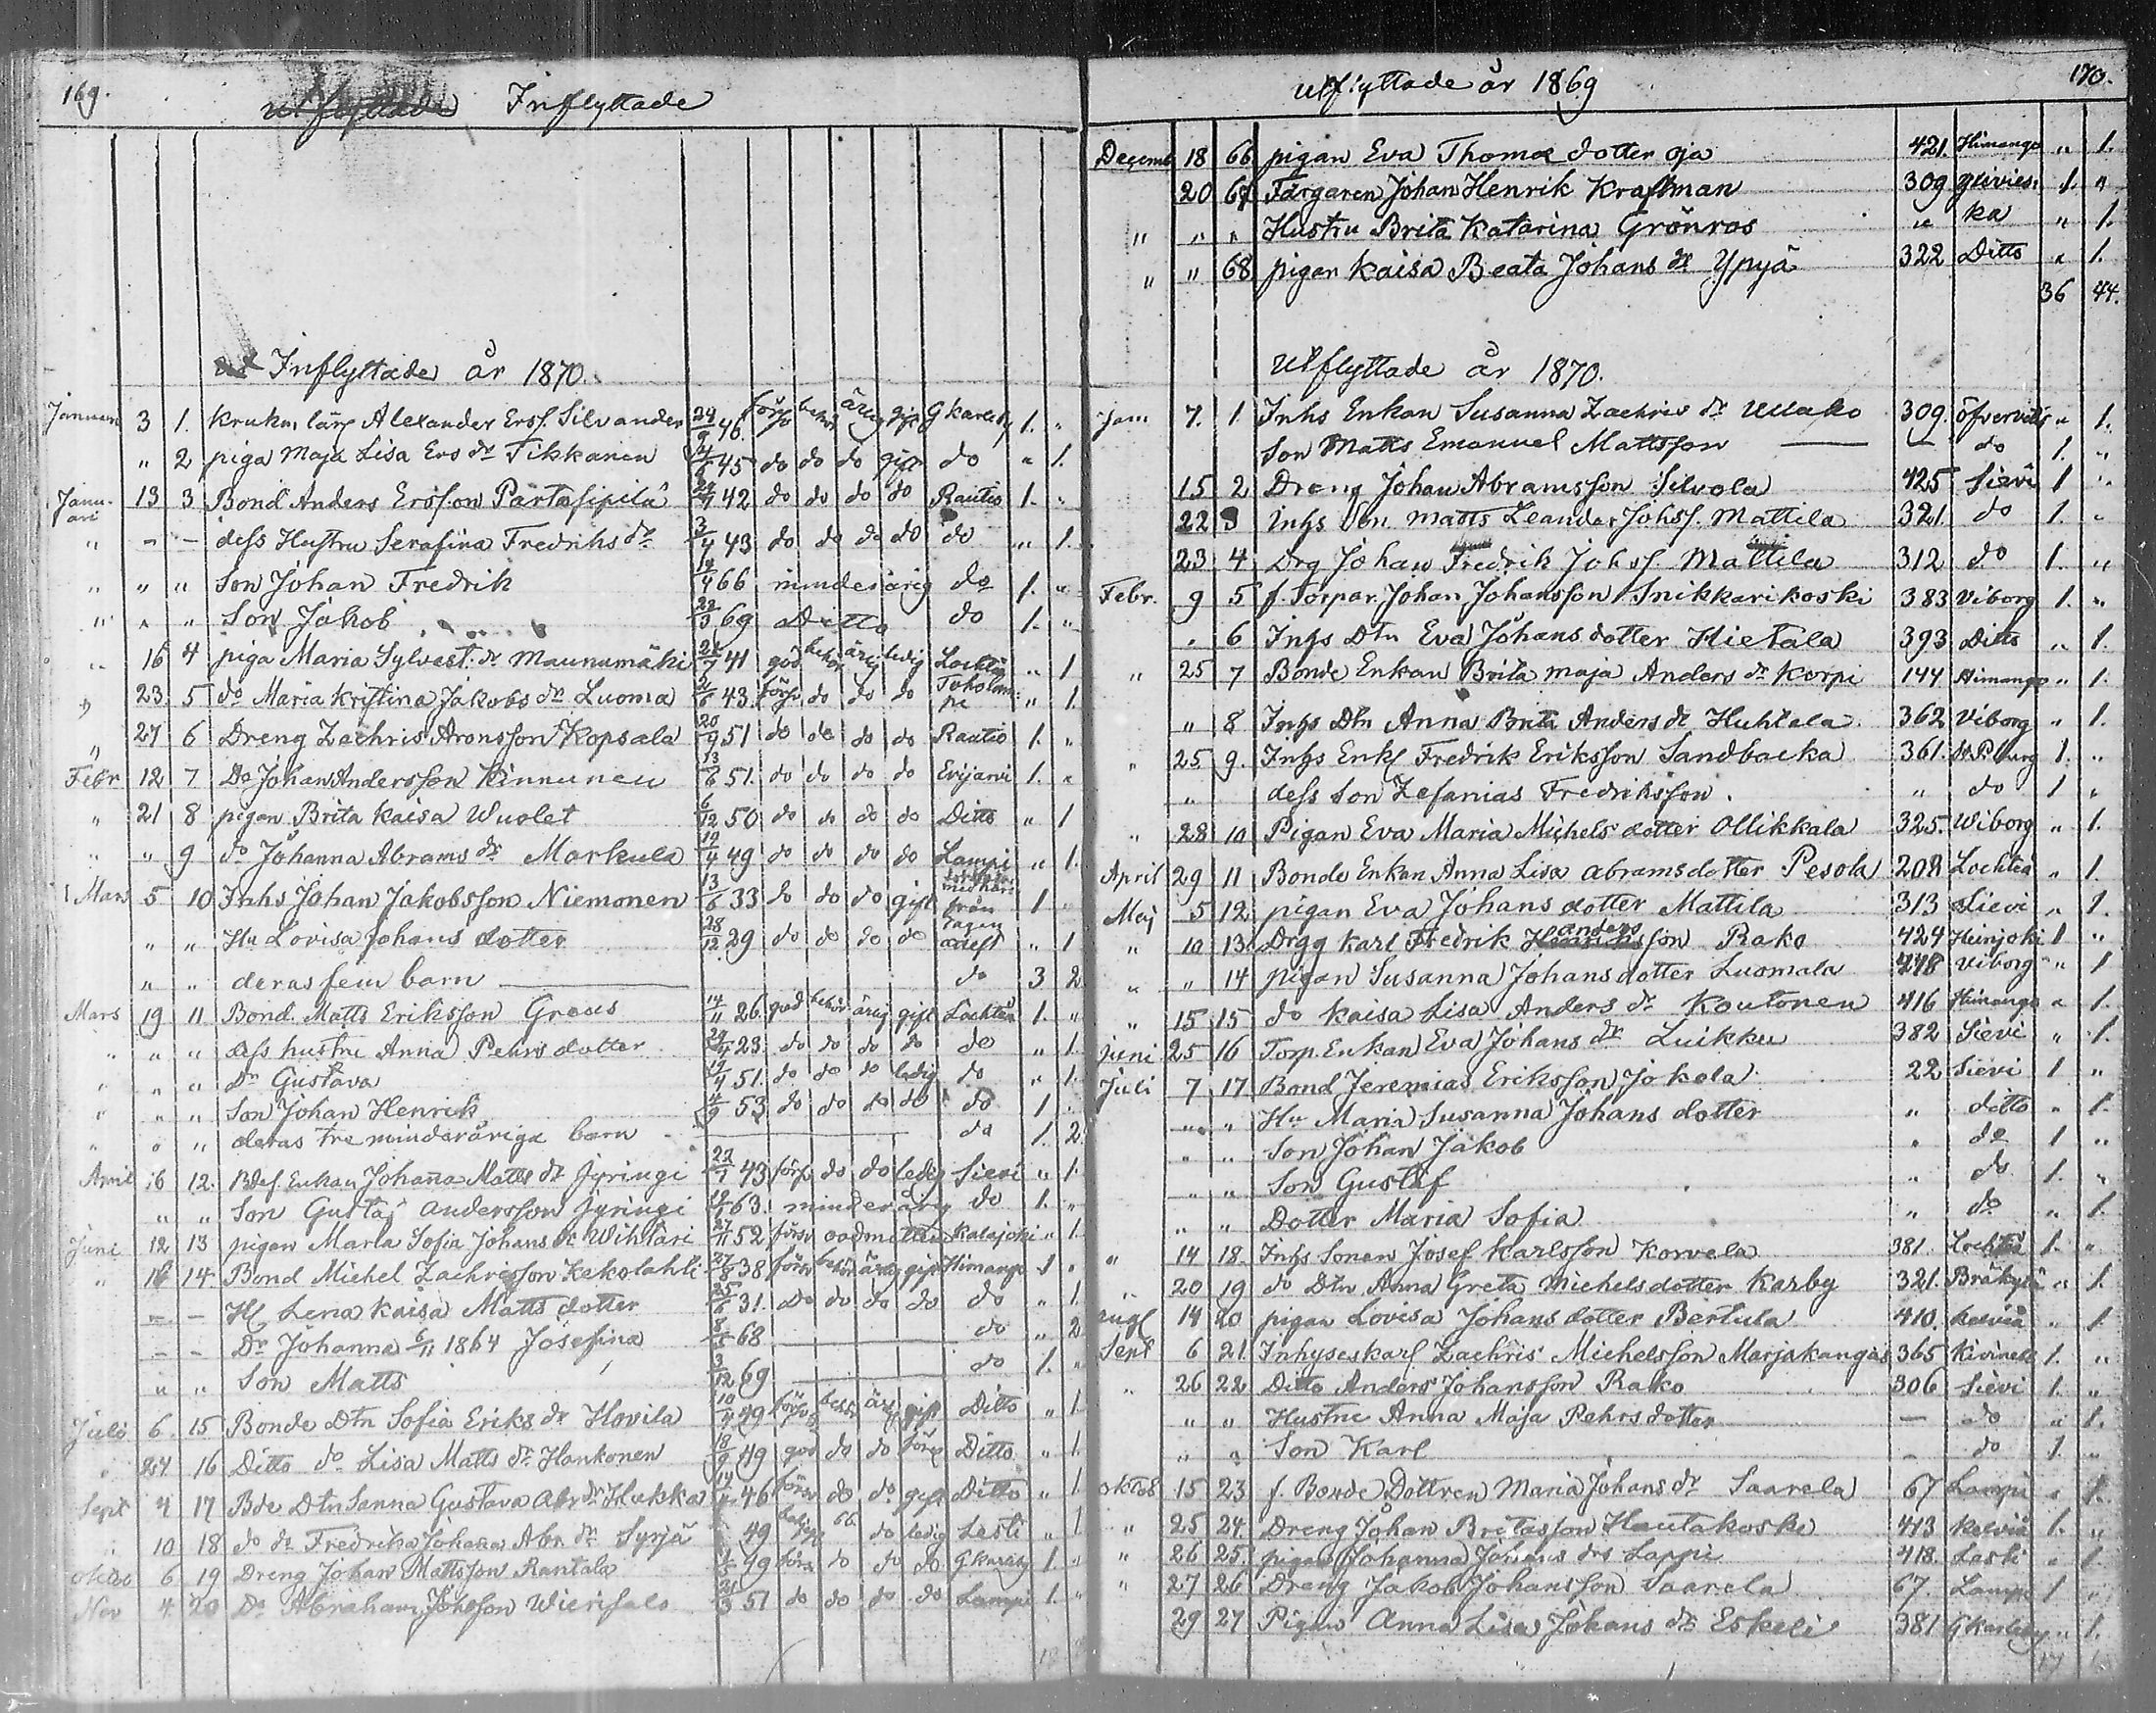 169.
utflyttade Inflyttade
Inflyttade år 1870.
Januari 3 1. Krukm. lärl Alexander Ersf. Silvander 24/9 46. försv behör ärlig gift Gkarleby 1. "
" 2 piga Maja Lisa Ers dr Tikkanen 14/6 45 do do do gift do " 1.
Januari 13 3 Bond Anders Ersson Partasipilä 29/4 42 do do do do Rautio 1. "
" - - dess Hustru Serafina Fredriks dr 3/4 43 do do do do do " 1.
" " " Son Johan Fredrik 12/4 66 minderårig do 1. "
" " " Son Jakob 22/3 69 Ditto do 1. "
" 16 4 piga Maria Sylvest. dr Maunumäki 21/7 41 god behör ärlig ledig Lochteå " 1
" 23 5 do Maria Kristina Jakobs dr Luoma 2/6 43. försv do do do Toholampi " 1
" 27 6 Dreng Zachris Aronsson Kopsala 20/9 51 do do do do Rautio 1. "
Febr 12 7 Do Johan Andersson Kinnunen 13/6 51. do do do do Evijärvi 1. "
" 21 8 pigan Brita Kaisa Wuolet 6/12 50 do do do do Ditto " 1
" " 9 do Johanna Abrams dr Markula 19/4 49 do do do do Lampi " 1.
Mars 5 10 Inhs Johan Jakobsson Niemonen 13/6 33 do do do gift från 1 "
" " Hu Lovisa Johans dotter 28/12 29 do do do do " 1
" " deras fem barn do 3 2
Mars 19 11 Bond. Matts Eriksson Greus 14/11 26. god behör ärlig gift Lochteå 1. "
" " " dess hustru Anna Pehrs dotter 29/4 23. do do do do do " 1.
" " " Dr Gustava 17/4 51. do do do ledig do " 1.
" " " Son Johan Henrik 4/9 53 do do do do do 1 "
" " " deras tre minderåriga barn do 1. 2.
April 16 12. Bdes. Enkan Johanna Matts dr Jyringi 22/7 43 försv do do ledig Sievi " 1.
" " Son Gustaf Andersson Jyringi 63. minderårig do 1. "
Juni 12 13 pigan Maria Sofia Johans dr Wihtari 27/11 52 försv oadmitterad Kalajoki " 1
" 16 14 Bond Michel Zachrisson Kekolahti 27/8 38 försv behör ärlig gift Himango 1 "
- - H. Lena Kaisa Matts dotter 25/6 31. do do do do do " 1.
- - Dr Johanna 6/11 1864 Josefina 8/5 68 do " 2
" " Son Matts 3/12 69 do 1. "
Juli 6. 15 Bonde Dtn Sofia Eriks dr Hovila 10/4 49 försv behör ärl gift Ditto " 1.
" 27 16 Ditto do Lisa Matts dr Hankonen 18/9 49 god do do Ditto " 1.
Sept 4 17 Bde Dtn Sanna Gustava Abr dr Hukka 46 försv do do gift Ditto " 1.
" 10 18 do dr Fredrika Johanna Abr. dr Syrjä 49 do ledig Lesti " 1
oktbr 6 19 Dreng Johan Mattsson Rantala 49 försv do do do Gkarleby 1. "
Nov 4 20 Do Abraham Johsson Wierisalo 51 do do do do Lampi 1. "
utflyttade år 1869 170.
Decemb 18 66 pigan Eva Thomæ dotter Oja 421. Himango " 1.
20 67 Färgaren Johan Henrik Kraftman 309 Ylivies- 1. "
" " " Hustru Brita Katarina Grönros " ka " 1.
" " 68 pigan Kaisa Beata Johans dr Ypyä 322 Ditto " 1.
36 44.
utflyttade år 1870.
Jan 7. 1 Inhs Enkan Susanna Zachris dr Ullako 309. Öfvervetil " 1.
Son Matts Emanuel Mattsson — do 1. "
15 2 Dreng Johan Abramsson Silvola 425 Sievi 1 "
22 3 inhs son Matts Leander Johsf. Mattila 321. do 1. "
23 4 Drg Johan Fredrik Johsf. Mattila 312 do 1. "
Febr. 9 5 f. Torpar. Johan Johansson Snikkarikoski 383 Viborg 1. "
" 6 Inhs Dtn Eva Johans dotter Hietala 393 Ditto " 1.
" 25 7 Bonde Enkan Brita Maja Anders dr Korpi 144 Himango " 1.
" 8 Inhs Dtn Anna Brita Anders dr Huhtala 362 Viborg " 1.
" 25 9. Inhs Enkl Fredrik Eriksson Sandbacka 361. St Pburg 1. "
" dess son Zefanias Fredriksson " do 1 "
" 28 10 Pigan Eva Maria Michels dotter Ollikkala 325. Wiborg " 1.
April 29 11 Bonde Enkan Anna Lisa Abramsdotter Pesola 208 Lochteå " 1.
Maj 5 12 pigan Eva Johans dotter Mattila 313 Sievi " 1.
" 10 13. Drgg Karl Fredrik Anders son Rako 424 Heinjoki 1 "
" " 14 pigan Susanna Johans dotter Luomala 278 Viborg " 1
" 15 15 do Kaisa Lisa Anders dr Koutonen 416 Himango " 1.
Juni 25 16 Torp. Enkan Eva Johans dr Luikku 382 Sievi " 1.
Juli 7 17 Bond Jeremias Eriksson Jokela 22 Sievi 1 "
" " Hu Maria Susanna Johans dotter " ditto " 1.
" " Son Johan Jakob " do 1 "
" " Son Gustaf " do 1. "
" " Dotter Maria Sofia " do " 1.
" 14 18. Inhs Sonen Josef Karlsson Korvela 381. Lochteå 1. "
" 20 19 do Dtn Anna Greta Michelsdotter Karby 321. Bräkylä " 1.
augl 14 20 pigan Lovisa Johans dotter Bertula 410. Kelviå " 1
Sept 6 21. Inhyseskarl Zachris Michelsson Marjakangas 365 Kivineb 1. "
" 26 22 Ditto Anders Johansson Rako 306 Sievi 1. "
" " Hustru Anna Maja Pehrs dotter — do " 1.
" " Son Karl - do 1 "
oktob 15 23 f. Bonde Dottren Maria Johans dr Saarela 67 Lampi " 1.
" 25 24. Dreng Johan Britasson Hautakoski 413 Kelviå 1. "
" 26 25. pigan Johanna Johans drs Lappi 418. Lesti " 1
" 27 26 Dreng Jakob Johansson Saarela 67. Lampi 1 "
29 27 Pigan Anna Lisa Johans dr Eskeli 381 Gkarleby " 1.
17